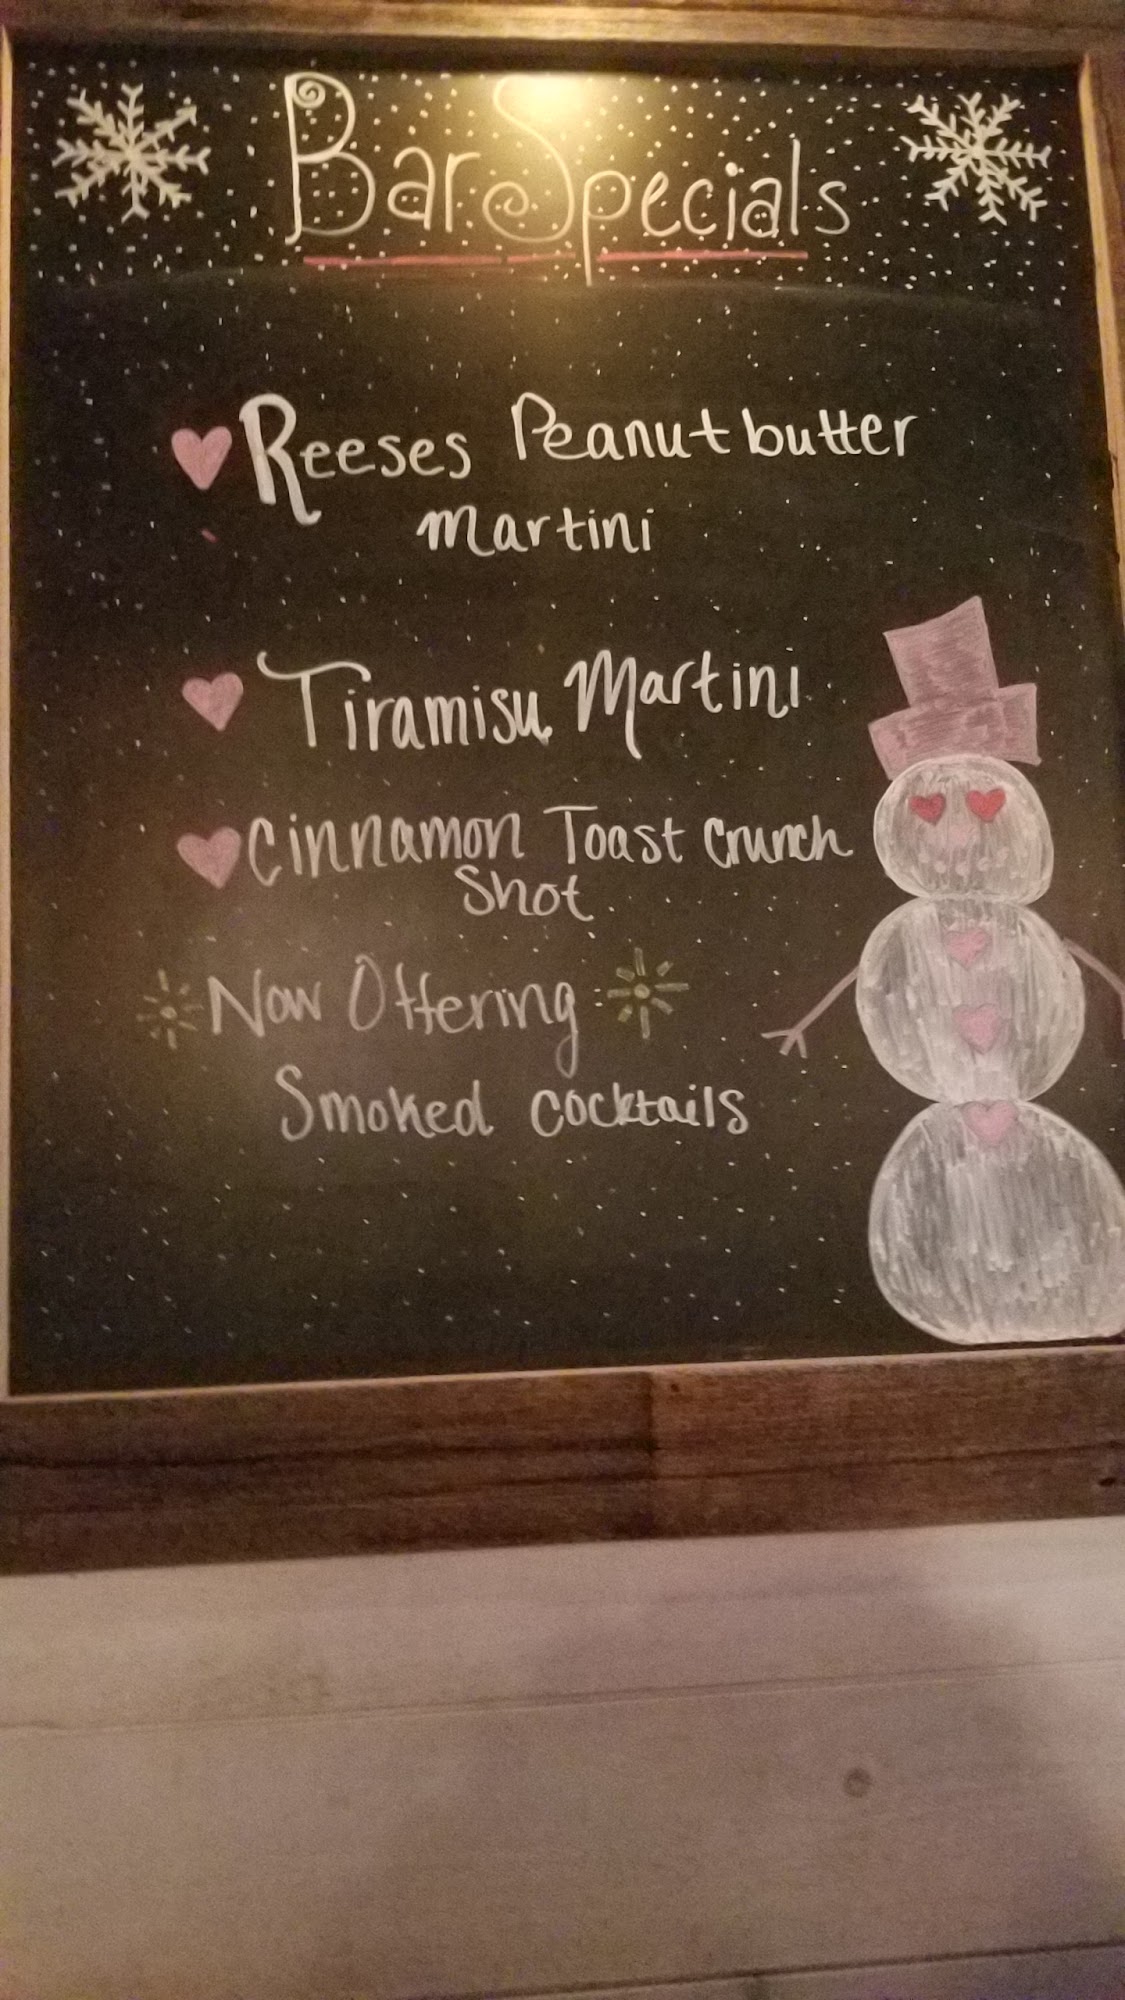 Bar Specials
Reeses Peanut butter
Martini
Tiramisu Martini
Cinnamon Toast Crunch
Shot
Now Offering
Smoked cocktails